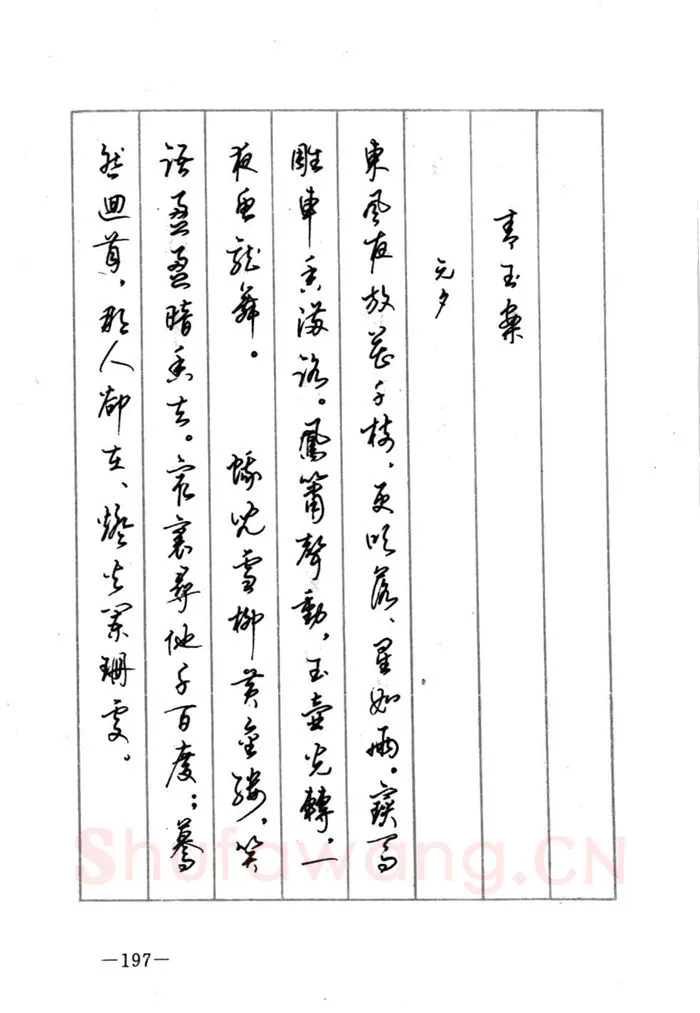 青玉案
元夕
東風夜放花千樹，更吹落、星如雨。寶馬
雕車香滿路。鳳簫聲動，玉壺光轉，一
夜魚龍舞。　　蛾兒雪柳黃金縷，笑
語盈盈暗香去。衆裏尋他千百度；驀
然迴首，那人卻在、燈火闌珊處。
Shufawang.CN
—197—